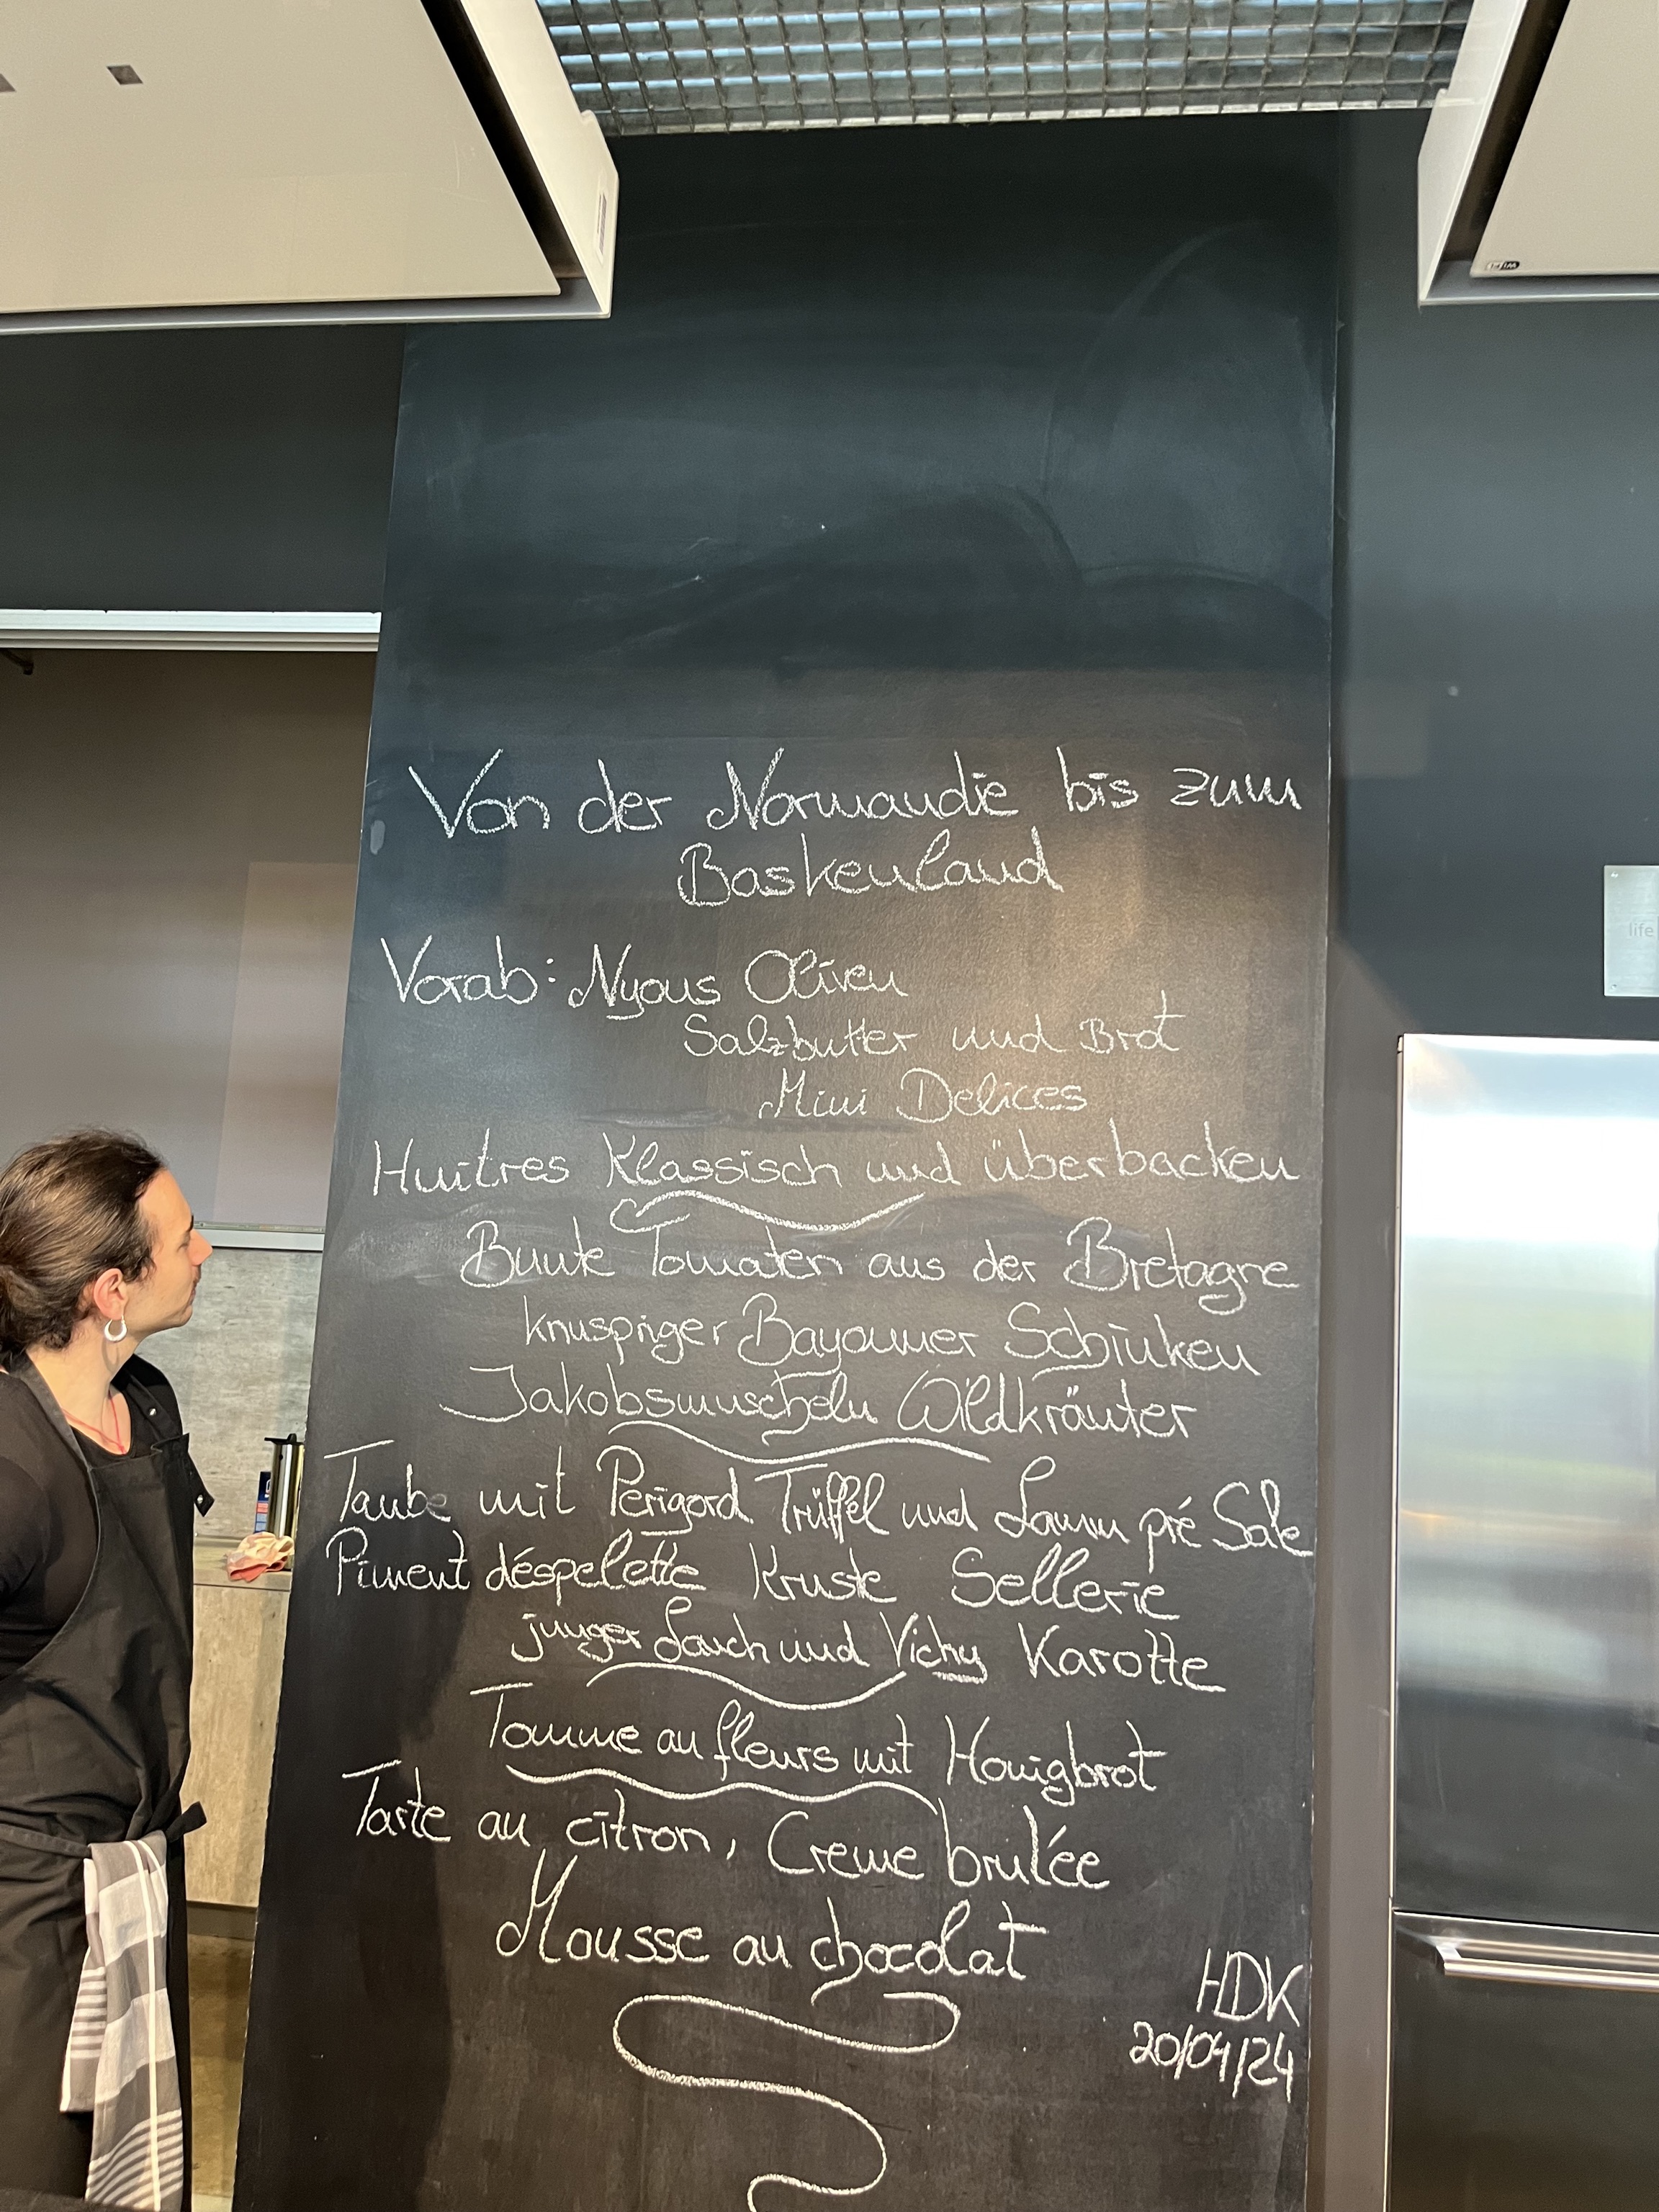 Von der Normandie bis zum
Baskenland
Vorab: Nyons Oliven
Salzbutter und Brot
Mini Delices
Huitres Klassisch und überbacken
Bunte Tomaten aus der Bretagne
knuspriger Bayonner Schinken
Jakobsmuscheln Wildkräuter
Taube mit Perigord Trüffel und Lamm pré Sale
Piment déspelette Kruste Sellerie
junger Lauch und Vichy Karotte
Tomme au fleurs mit Honigbrot
Tarte au citron, Creme brulée
Mousse au chocolat
HDK
20/04/24
life